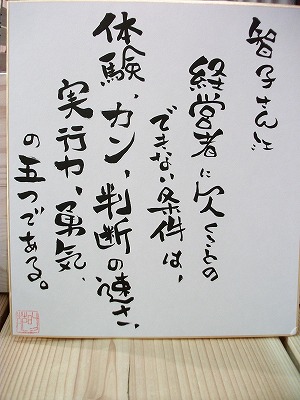 智子さん江
経営者に欠くことの
できない条件は、
体験、カン、判断の速さ、
実行力、勇気、
の五つである。